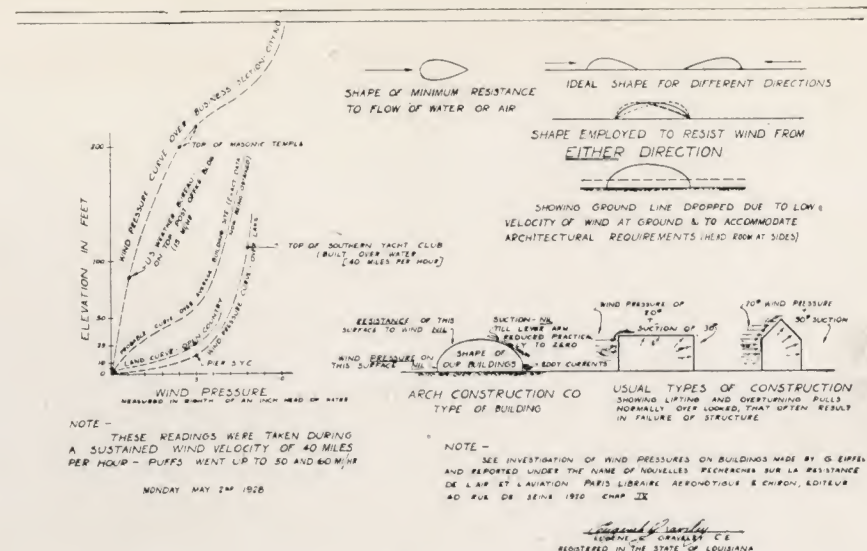 WIND PRESSURE CURVE OVER BUSINESS SECTION-CITY NO
TOP OF MASONIC TEMPLE
U.S. WEATHER BUREAU
ON TOP POST OFFICE BLDG
(15 MI/HR)
PROBABLE CURVE OVER AVERAGE BUILDING SITE (EXACT DATA
NOW BEING OBTAINED)
TOP OF SOUTHERN YACHT CLUB
(BUILT OVER WATER
[40 MILES PER HOUR]
LAND CURVE - OPEN COUNTRY
WIND PRESSURE CURVE - OVER LAKE
PIER SYC
ELEVATION IN FEET
200
100
50
20
10
0
WIND PRESSURE
MEASURED IN EIGHTH OF AN INCH HEAD OF WATER
NOTE -
THESE READINGS WERE TAKEN DURING
A SUSTAINED WIND VELOCITY OF 40 MILES
PER HOUR - PUFFS WENT UP TO 50 AND 60 MI/HR
MONDAY MAY 2ND 1928
SHAPE OF MINIMUM RESISTANCE
TO FLOW OF WATER OR AIR
IDEAL SHAPE FOR DIFFERENT DIRECTIONS
SHAPE EMPLOYED TO RESIST WIND FROM
EITHER DIRECTION
SHOWING GROUND LINE DROPPED DUE TO LOW
VELOCITY OF WIND AT GROUND & TO ACCOMMODATE
ARCHITECTURAL REQUIREMENTS (HEAD ROOM AT SIDES)
RESISTANCE OF THIS
SURFACE TO WIND NIL
WIND PRESSURE ON
THIS SURFACE NIL
SHAPE OF
OUR BUILDINGS
SUCTION - NIL
TILL LEVER ARM
REDUCED PRACTICALLY TO ZERO
EDDY CURRENTS
ARCH CONSTRUCTION CO
TYPE OF BUILDING
WIND PRESSURE OF
70°
+
SUCTION OF 30°
70° WIND PRESSURE
+
30° SUCTION
USUAL TYPES OF CONSTRUCTION
SHOWING LIFTING AND OVERTURNING PULLS
NORMALLY OVER LOOKED, THAT OFTEN RESULT
IN FAILURE OF STRUCTURE
NOTE -
SEE INVESTIGATION OF WIND PRESSURES ON BUILDINGS MADE BY G. EIFFEL
AND REPORTED UNDER THE NAME OF NOUVELLES RECHERCHES SUR LA RESISTANCE
DE L AIR ET L AVIATION PARIS LIBRAIRE AERONOTIQUE E CHIRON, EDITEUR
40 RUE DE SEINE 1920 CHAP IX
REGISTERED IN THE STATE OF LOUISIANA